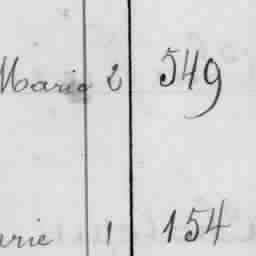 Marie 2 549
arie 1 154